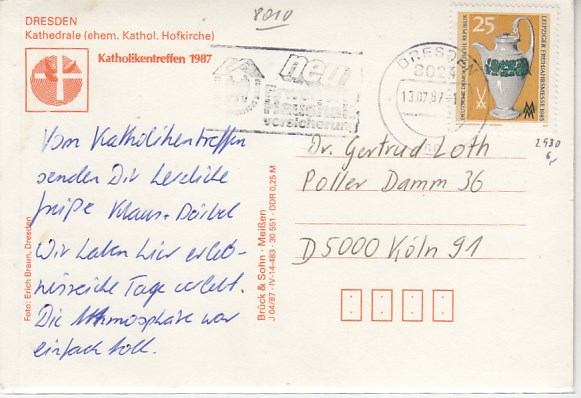 DRESDEN
Kathedrale (ehem. Kathol. Hofkirche)
8010
Katholikentreffen 1987
neu
versicherung
DRESDEN
13.07.87
25
LEIPZIGER FRÜHJAHRSMESSE 1985
DEUTSCHE DEMOKRATISCHE REPUBLIK
2930
6,
Vom Katholikentreffen
senden Dir herzliche
Grüße Klaus + Bärbel
Wir haben hier erleb-
nisreiche Tage erlebt.
Die Athmosphäre war
einfach toll.
Foto: Erich Braun, Dresden
Brück & Sohn · Meißen
J 04/87 · IV-14-483 · 30 551 · DDR 0,25 M
Dr. Gertrud Loth
Poller Damm 36
D 5000 Köln 91